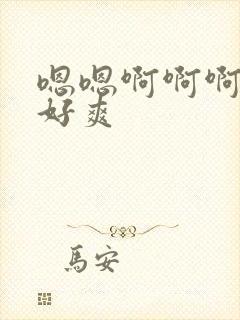 嗯嗯啊啊啊
好爽
馬安